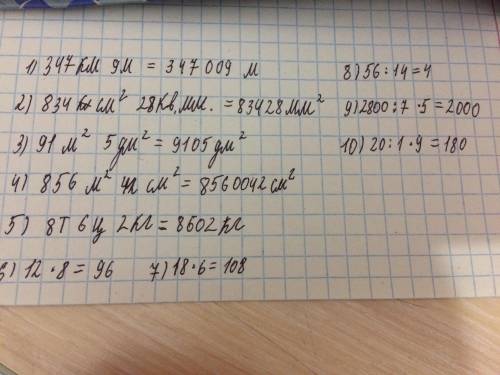 1) 347 км 9м = 347 009 м
2) 834 см² 28кв.мм. = 83428мм²
3) 91 м² 5 дм² = 9105 дм²
4) 856 м² см² = 8560042 см²
5) 8т 6ц 2кг = 8602 кг
6) 12 · 8 = 96
7) 18 · 6 = 108
8) 56 : 14 = 4
9) 2800 : 7 · 5 = 2000
10) 20 : 1 · 9 = 180